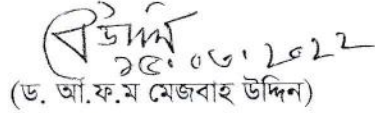 ১৫.০৩.২০২২
(ড. আ.ফ.ম মেজবাহ উদ্দিন)